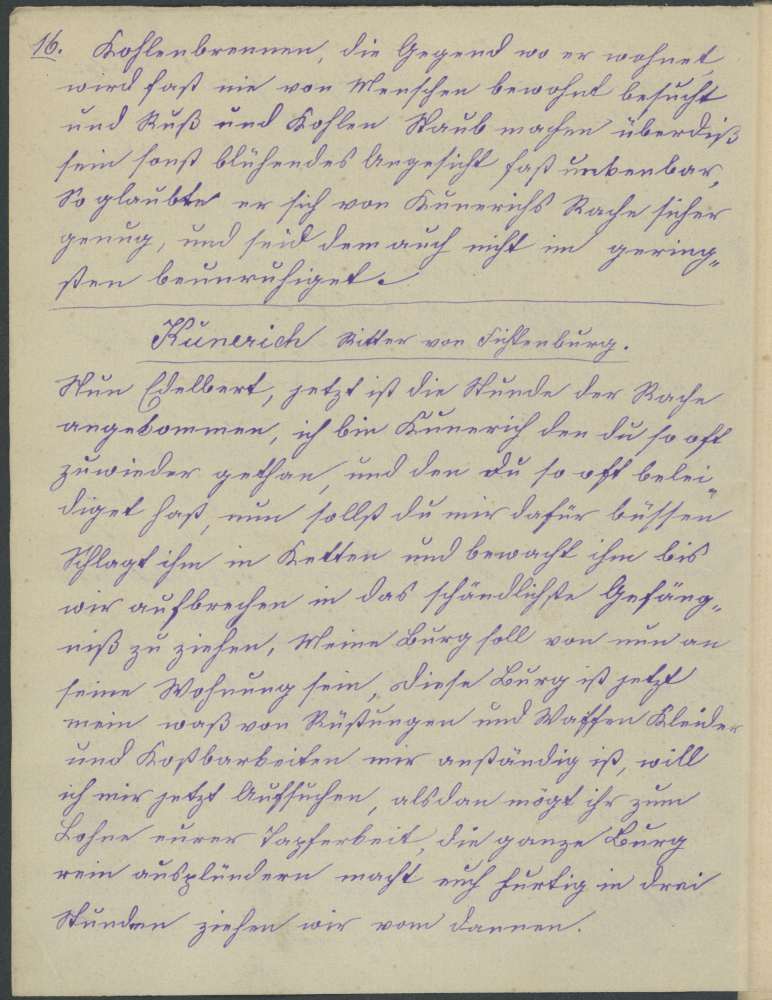 16. Kohlenbrennen, die Gegend wo er wohnet
wird fast nie von Menschen bewohnt besucht
und Ruß und Kohlen Staub machen überdiß
sein sonst blühendes Angesicht fast unkenbar,
So glaubte er sich von Kunerichs Rache sicher
genug, und seid dem auch nicht im gering„
sten beunruhiget.
Kunerich Ritter von Fichtenburg.
Nun Edelbert, jetzt ist die Stunde der Rache
angekommen, ich bin Kunerich den du so oft
zuwieder gethan, und den du so oft belei„
diget hast, nun sollst du mir dafür büssen
Schlagt ihm in Ketten und bewacht ihm bis
wir aufbrechen in das schändlichste Gefäng„
niß zu ziehen, Meine Burg soll von nun an
seine Wohnung sein, diese Burg ist jetzt
mein waß von Rüstungen und Waffen Kleider
und Kostbarkeiten mir anständig ist, will
ich mir jetzt Aufsuchen, alsdan mögt ihr zum
Lohne eurer Tapferkeit, die ganze Burg
rein ausplündern macht euch hurtig in drei
Stunden ziehen wir vom dannen.